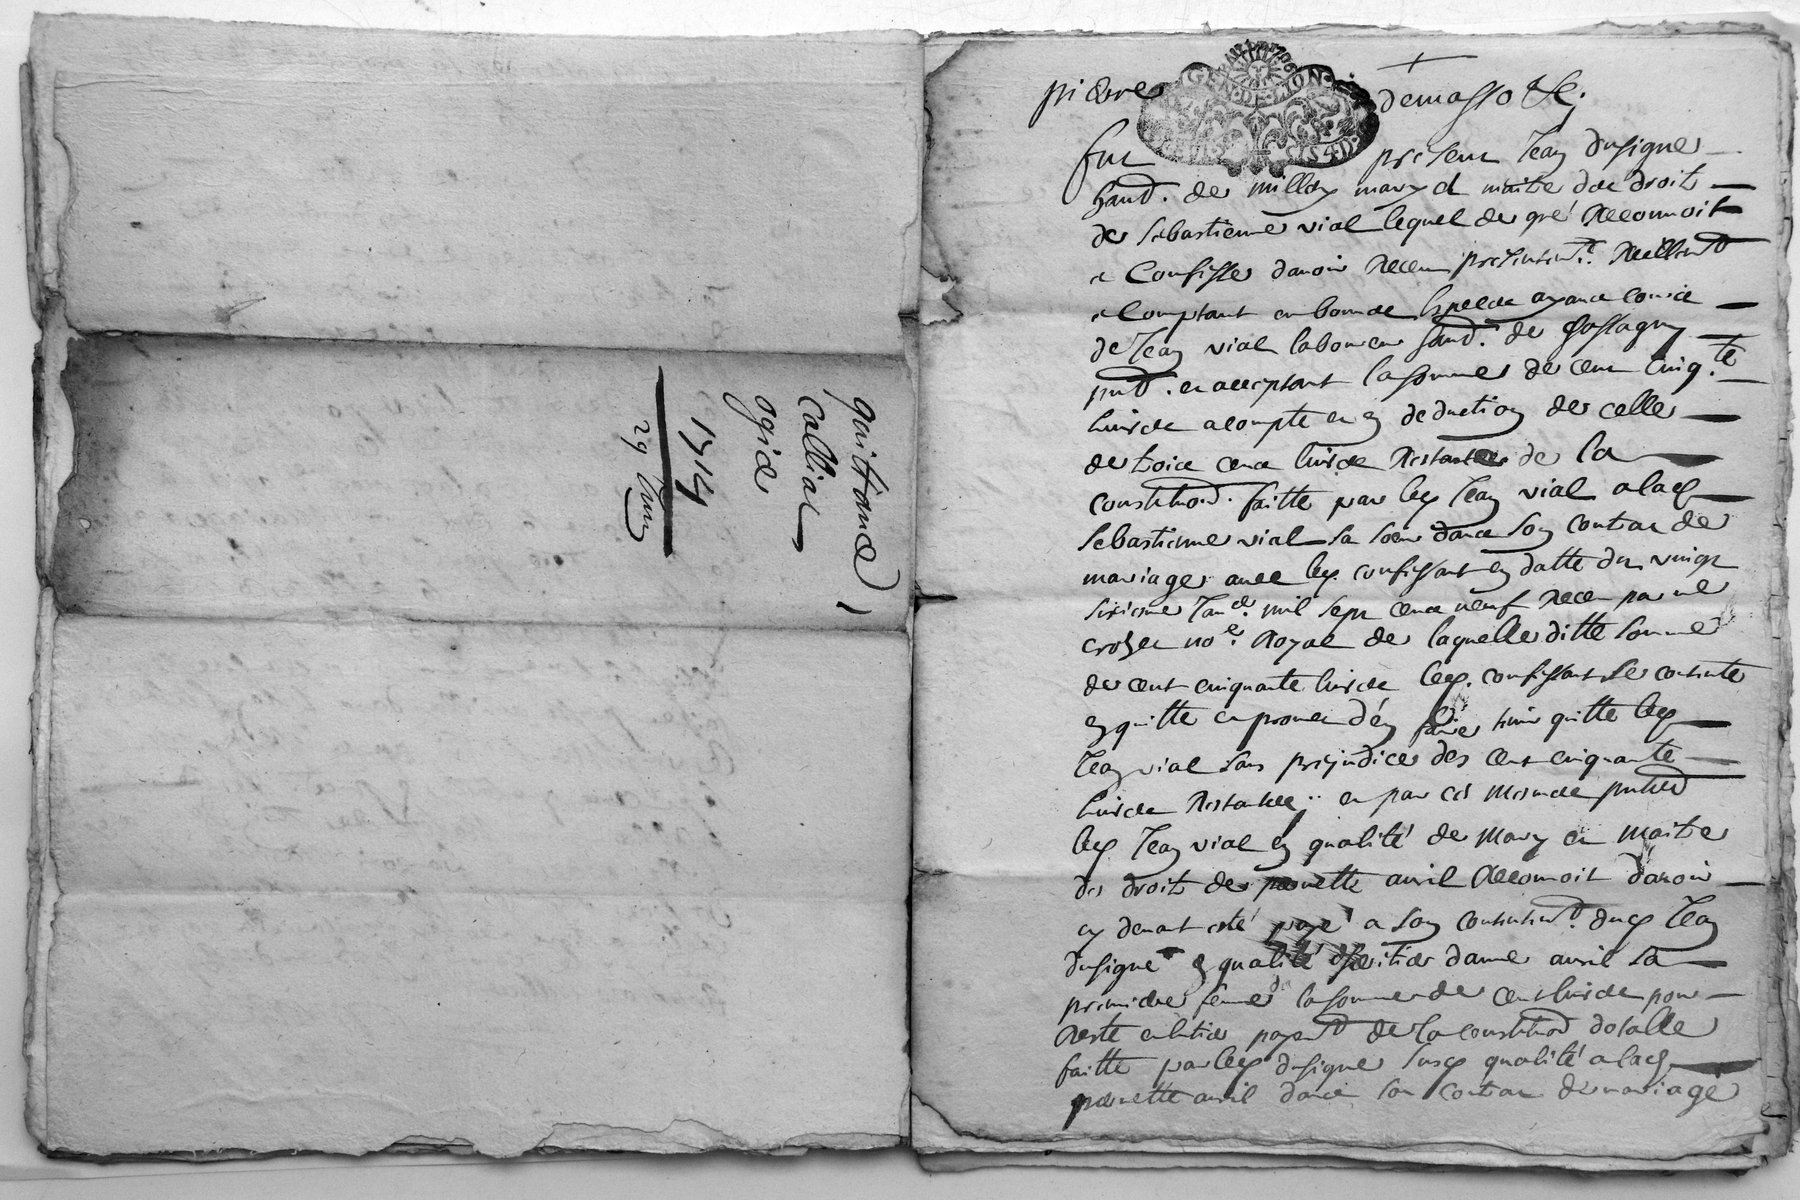 quittance
calliat
ogier
1714
29 Juin
pierre demasso &c;
GEN·DE·LION
fut present Jean dusigne
hand. de millery mary et maitre des droit
de sebastienne vial lequel de gré Reconnoit
e Confesse davoir Receu presentem.t Reellem.t
e Comptant en bonne Espece ayant cource
de Jean vial laboureur hand. de
pnt. en acceptant la somme de cent cinq.te
livres acompte en en deduction de celle
de troix cent livres Restante de la
constituo.n faitte par led Jean vial alad
Sebastienne vial sa soeur dans son contrat de
mariage avec led. confessant en datte du vingt
sixieme Jan.er mil sept cent neuf Receu par me
crozet no.re Royal de laquelle ditte somme
de cent cinquante livres led. confessant se contente
en quitte en promet d'en faire tenir quitte led
Jean vial sans prejudice des cent cinquante
livres Restantes; en par ces mesmes pntes
led Jean vial en qualité de mary en maitre
des droit de pernette avril Reconnoit davoir
cy devant esté payé a son contentem.t dud Jean
dusigne en qualité heritier danne avril sa
premiere femme la somme de cent livres pour
Reste en entier payem.t de la constituo.n dotalle
faitte par led dusigne susd qualité alad
pernette avril dans son contrat de mariage